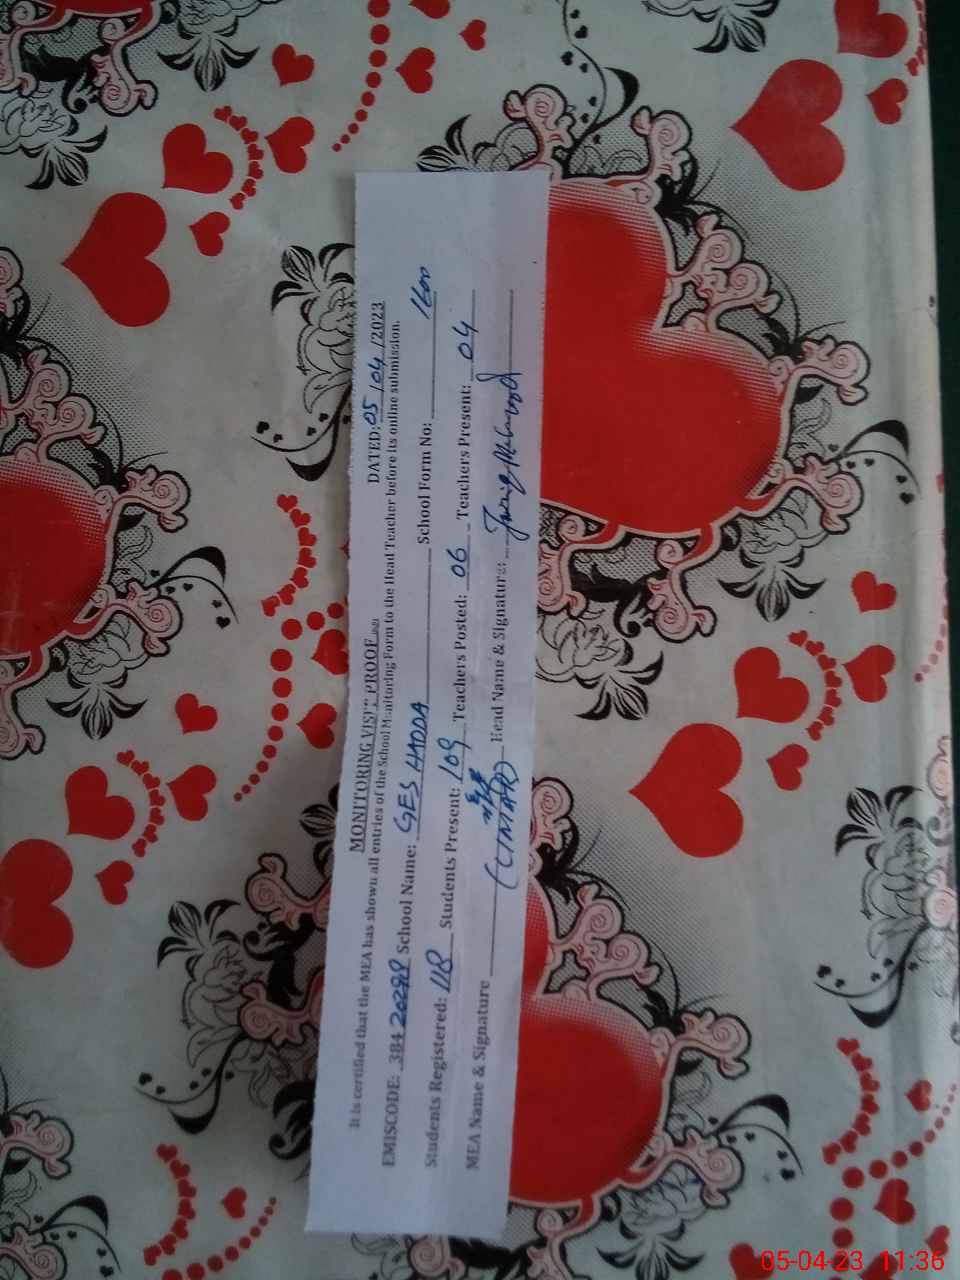 MONITORING VISIT PROOF DATED: 05/04/2023
It is certified that the MEA has shown all entries of the School Monitoring Form to the Head Teacher before its online submission.
EMISCODE: 38420298 School Name: GES HADDA School Form No: 1600
Students Registered: 118 Students Present: 109 Teachers Posted: 06 Teachers Present: 04
MEA Name & Signature (UMAR) Head Name & Signature: Tariq Mehmood
05-04-23 11:36